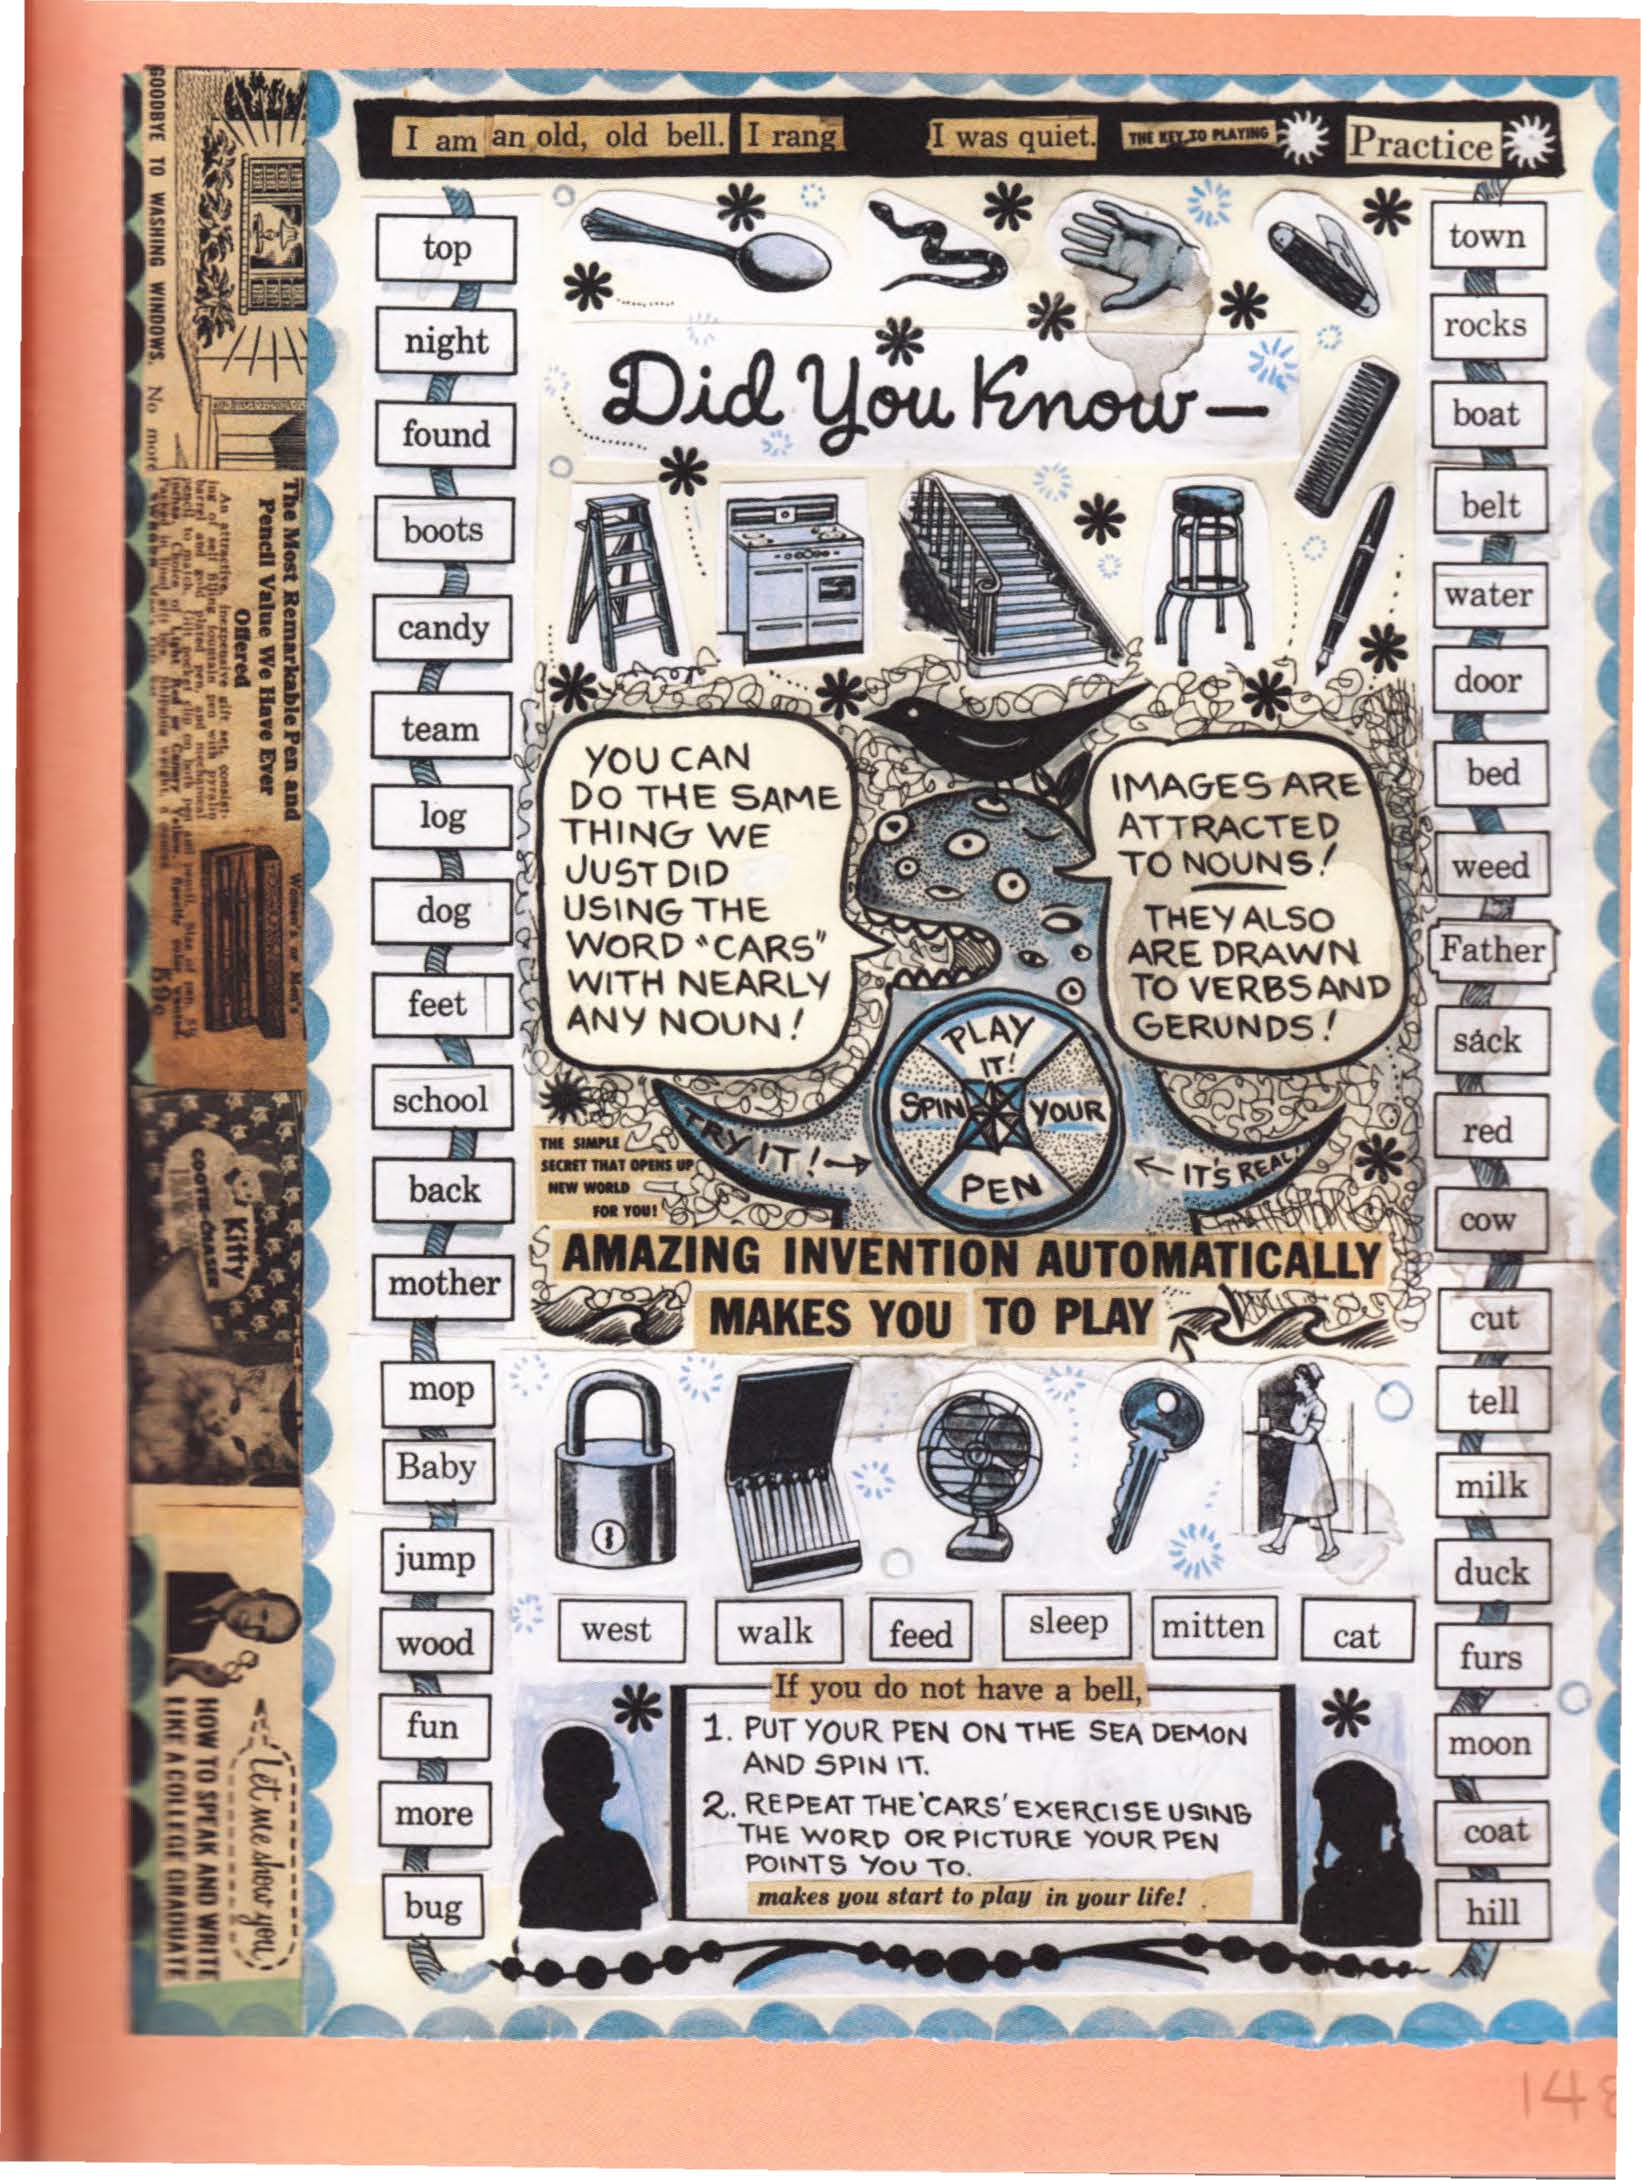 I am an old, old bell. I rang I was quiet. THE KEY TO PLAYING Practice
top
night
found
boots
candy
team
log
dog
feet
school
back
mother
mop
Baby
jump
wood
fun
more
bug
Did You Know —
YOU CAN
DO THE SAME
THING WE
JUST DID
USING THE
WORD "CARS"
WITH NEARLY
ANY NOUN!
IMAGES ARE
ATTRACTED
TO NOUNS!
THEY ALSO
ARE DRAWN
TO VERBS AND
GERUNDS!
PLAY
IT!
SPIN YOUR
PEN
TRY IT! →
← IT'S REAL!
THE SIMPLE
SECRET THAT OPENS UP
NEW WORLD
FOR YOU!
AMAZING INVENTION AUTOMATICALLY
MAKES YOU TO PLAY
west walk feed sleep mitten cat
If you do not have a bell,
1. PUT YOUR PEN ON THE SEA DEMON
AND SPIN IT.
2. REPEAT THE 'CARS' EXERCISE USING
THE WORD OR PICTURE YOUR PEN
POINTS YOU TO.
makes you start to play in your life!
town
rocks
boat
belt
water
door
bed
weed
Father
sack
red
cow
cut
tell
milk
duck
furs
moon
coat
hill
GOODBYE TO WASHING WINDOWS. No more
The Most Remarkable Pen and
Pencil Value We Have Ever
Offered
Women's or Men's
An attractive, inexpensive gift set, consist-
ing of self filling fountain pen with
barrel and gold plated pen, and mechanical
pencil to match.
59c
Kitty
COOTIE-CHASER
Let me show you
HOW TO SPEAK AND WRITE
LIKE A COLLEGE GRADUATE
148